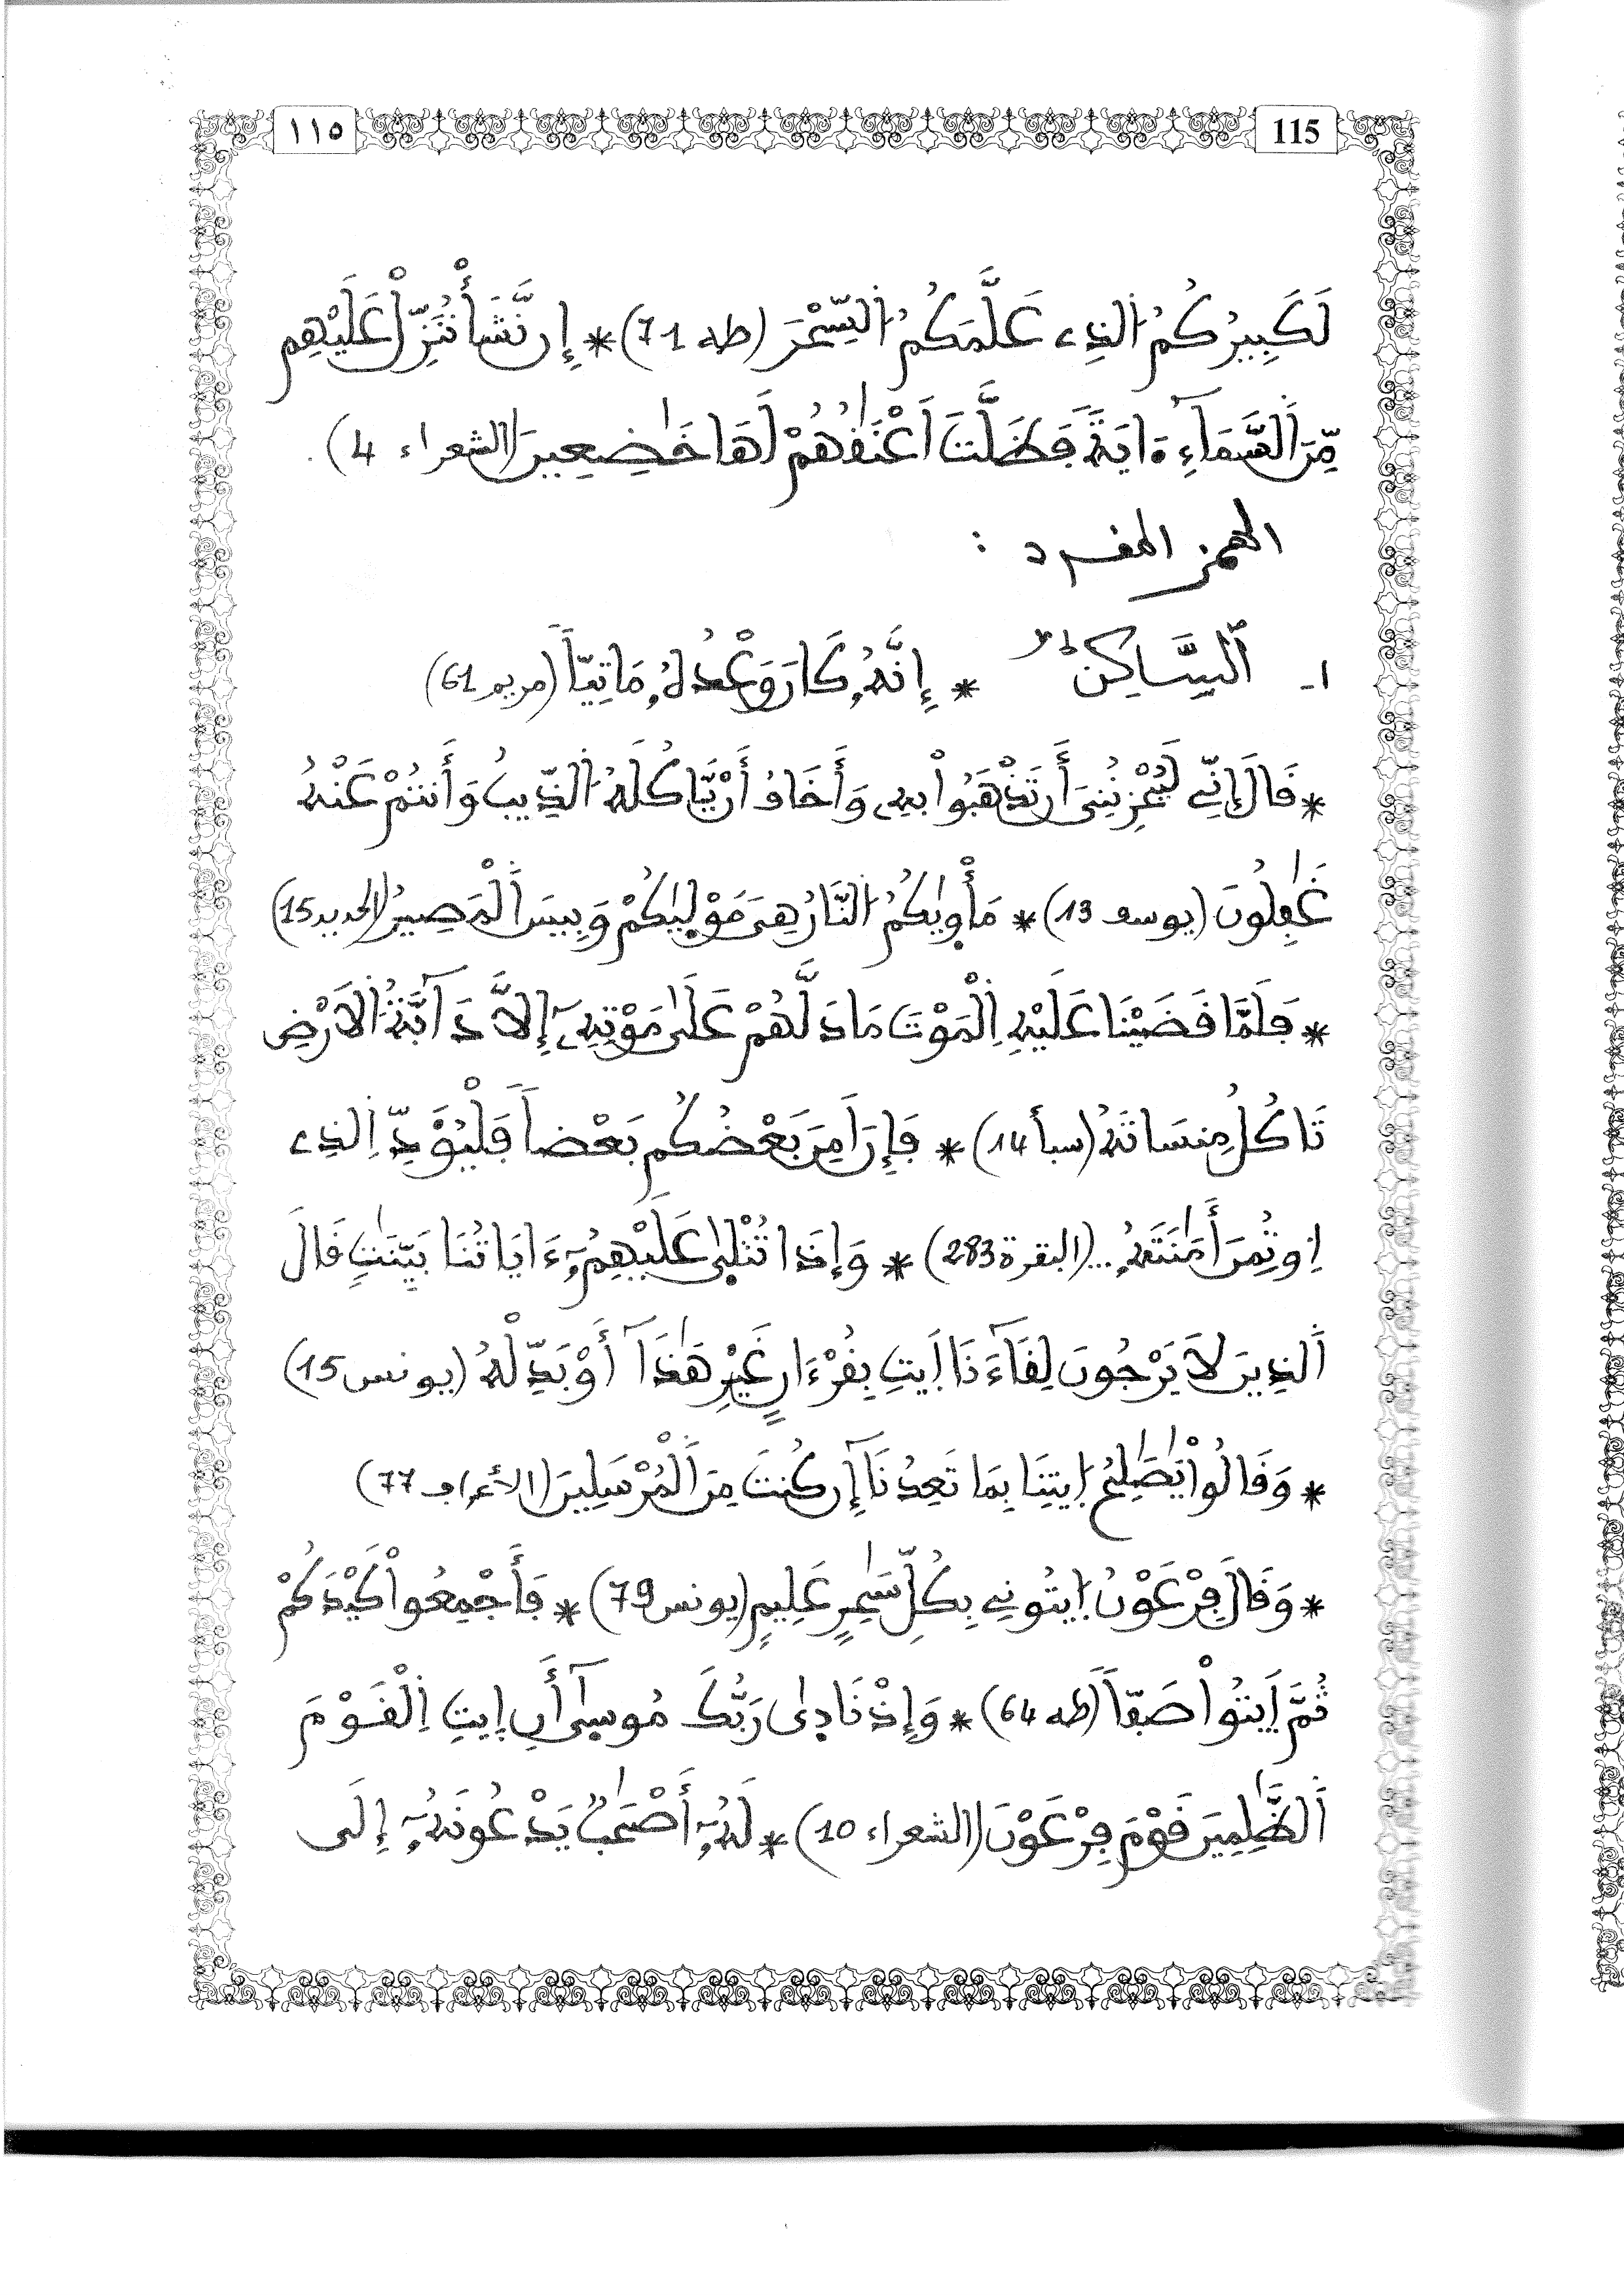 115 ١١٥
لَكَبِيرُكُمُ الذِے عَلَّمَكُمُ السِّحْرَ (طه 71) * إِن نَّشَأْ نُنَزِّلْ عَلَيْهِم
مِّنَ السَّمَآءِ ءَايَةً فَظَلَّتَ اَعْنَٰقُهُمْ لَهَا خَٰضِعِينَ (الشعراء 4).
الهمز المفرد :
ا- السَّاكِن * إِنَّهُۥ كَانَ وَعْدُهُۥ مَاتِيّاً (مريم 61)
* قَالَ إِنِّے لَيُحْزِنُنِيَ أَن تَذْهَبُواْ بِهِۦ وَأَخَافُ أَنْ يَّاكُلَهُ الذِّيبُ وَأَنتُمْ عَنْهُ
غَٰفِلُونَ (يوسف 13) * مَأْو۪يٰكُمُ النَّارُ هِيَ مَوْل۪يٰكُمْ وَبِيسَ اَلْمَصِيرُ (الحديد 15)
* فَلَمَّا قَضَيْنَا عَلَيْهِ اِلْمَوْتَ مَا دَلَّهُمْ عَلَىٰ مَوْتِهِۦٓ إِلاَّ دَآبَّةُ الَارْضِ
تَاكُلُ مِنسَاتَهُ (سبأ 14) * فَإِنَ اَمِنَ بَعْضُكُم بَعْضاً فَلْيُؤَدِّ اِلذِے
اِوتُمِنَ أَمَٰنَتَهُۥ... (البقرة 283) * وَإِذَا تُتْل۪يٰ عَلَيْهِمُۥٓ ءَايَاتُنَا بَيِّنَٰتٖ قَالَ
اَلذِينَ لاَ يَرْجُونَ لِقَآءَنَا اَيتِ بِقُرْءَانٍ غَيْرِ هَٰذَآ أَوْ بَدِّلْهُ (يونس 15)
* وَقَالُواْ يَٰصَٰلِحُ اِيتِنَا بِمَا تَعِدُنَآ إِن كُنتَ مِنَ اَلْمُرْسَلِينَ (الأعراف 77)
* وَقَالَ فِرْعَوْنُ اِيتُونِے بِكُلِّ سَٰحِرٍ عَلِيمٍ (يونس 79) * فَأَجْمِعُواْ كَيْدَكُمْ
ثُمَّ اَيتُواْ صَفّاً (طه 64) * وَإِذْ نَاد۪يٰ رَبُّكَ مُوس۪يٰٓ أَنِ اِيتِ اِلْقَوْمَ
اَلظَّٰلِمِينَ قَوْمَ فِرْعَوْنَ (الشعراء 10) * لَهُۥٓ أَصْحَٰبٌ يَدْعُونَهُۥٓ إِلَى